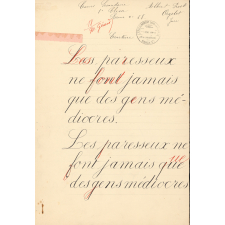 Les paresseux
ne font jamais
que des gens mé-
diocres.
Les paresseux ne
font jamais que
des gens médiocres